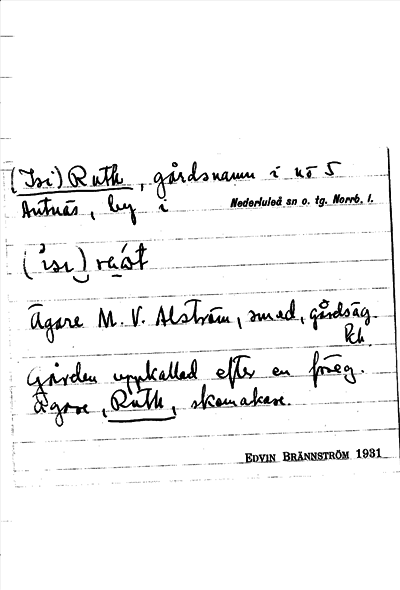 (Isi) Ruth, gårdsnamn i nò 5
Antnäs, by i Nederluleå sn o. tg. Norrb. l.
Ägare M. V. Alström, smed, gårdsäg.
Gården uppkallad efter en föreg.
ägare, Ruth, skomakare.
EDVIN BRÄNNSTRÖM 1931